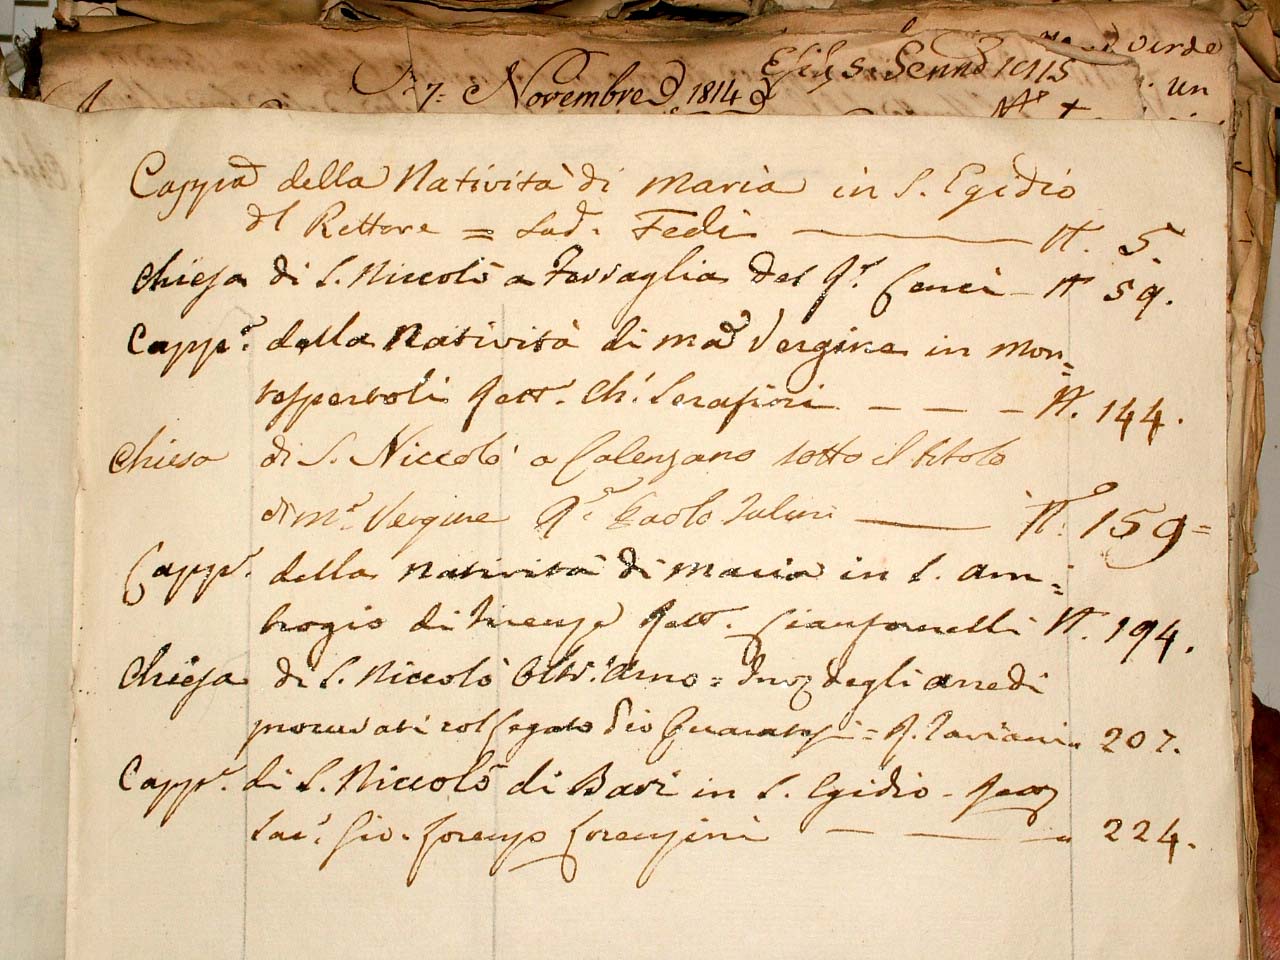 7: Novembre 1814
verde
un
Cappa della Natività di Maria in S. Egidio
dl Rettore = Sad. Fedi — N. 5.
Chiesa di S. Niccolò a Ferraglia del R.r Cenci — N 59.
Capp.a della Natività di Ma Vergine in Mon=
=tespertoli Rett. Ch. Serafini — — — N. 144.
Chiesa di S. Niccolò a Calenzano sotto il titolo
di M.a Vergine R.e Paolo — N.o 159=
Capp.a della Natività di Maria in S. Am=
brogio di Firenze Rett. Gianfornelli N. 194.
Chiesa di S. Niccolò Oltr'arno = degli arredi
procurati col Legato Pio = R. 207.
Capp.a di S. Niccolò di Bari in S. Egidio - Rett
Sac. Gio. Lorenzo Lorenzini — — 224.